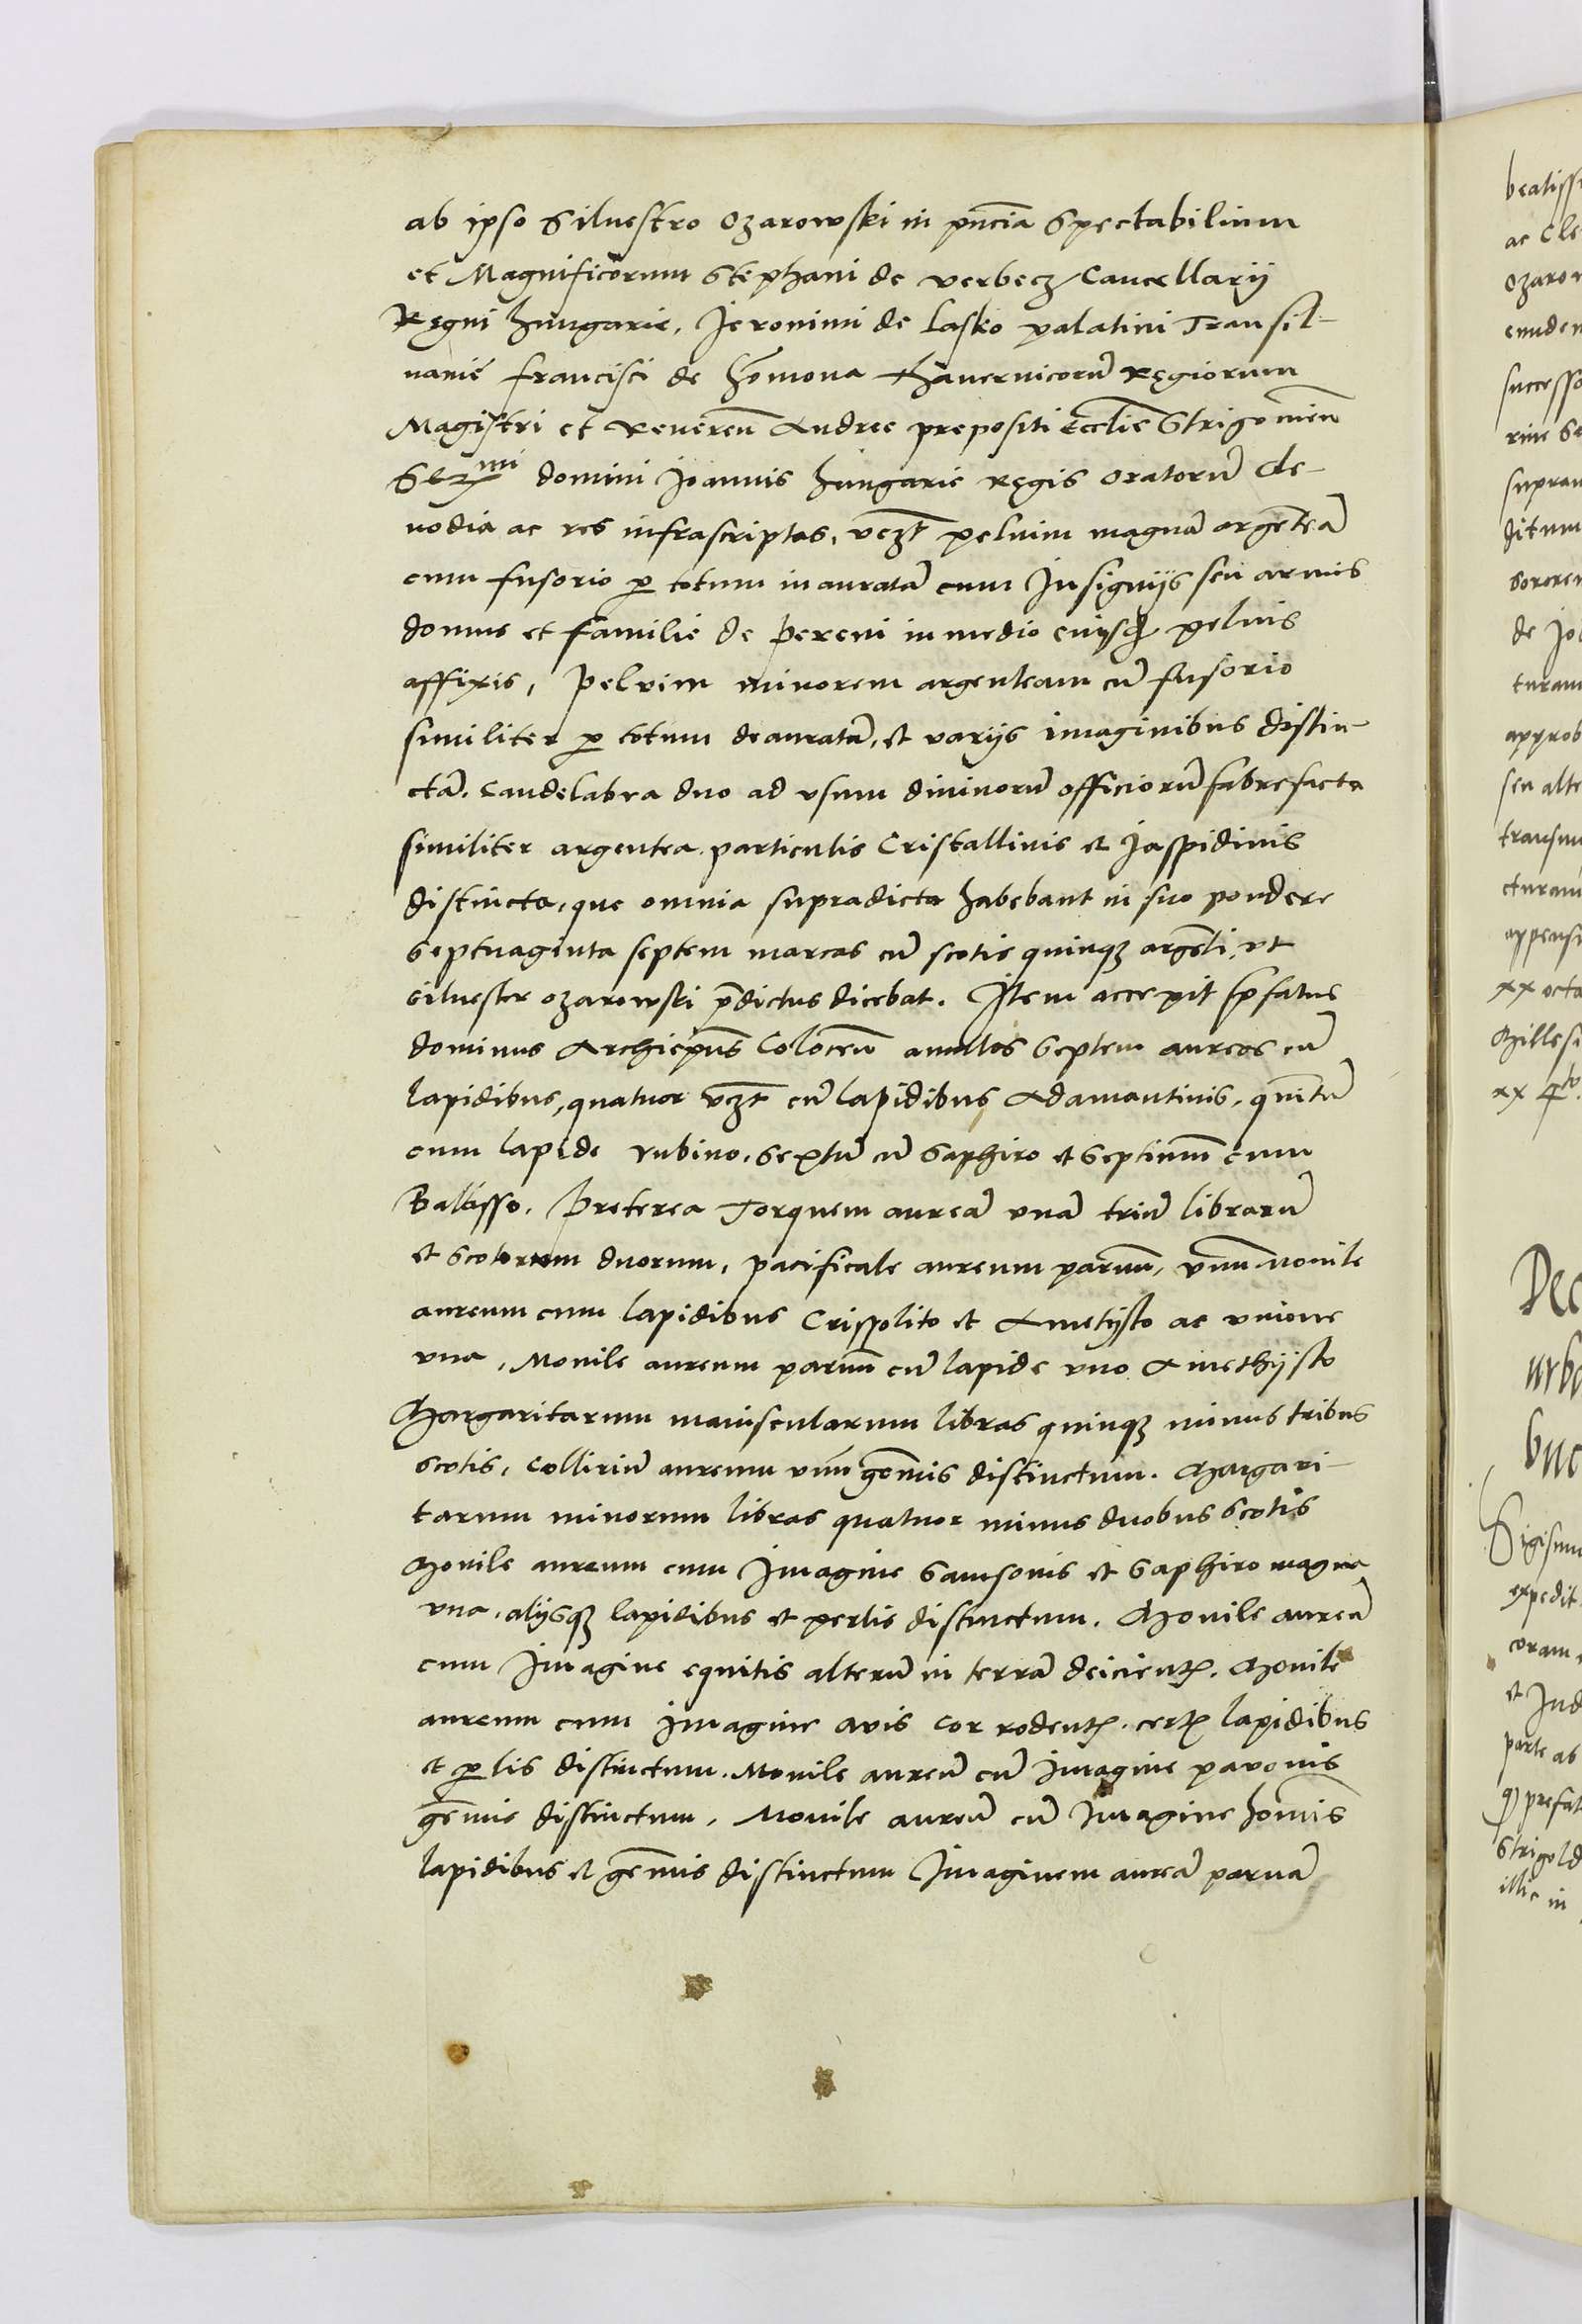 ab ipso Siluestro Ozarowski in pn̄cia Spectabilium
et Magnificorum Stephani de verbecz Cancellarij
Regni hungarie, Jeronimi de Lasko palatini Transil-
uanie francisci de ho͞mona thauernicorū Regiorum
Magistri et Reueren̄ Andree prepositi Eccl͞ie Strigonien̄
Ser͞mi domini Joannis hungarie Regis Oratorū Cle-
nodia ac res infrascriptas, vcz͞t peluim magnā argenteā
cum fusorio ꝑ totum inauratā cum Insignijs seu armis
domus et familie de Pereni in medio eiusdē peluis
affixis, Peluim minorem argenteam cū fusorio
similiter ꝑ totum deauratā, et varijs imaginibus distin-
ctā. Candelabra duo ad vsum diuinorū officiorū fabrefacta
similiter argentea particulis Cristallinis et Jaspidinis
distincta, que omnia supradicta habebant in suo pondere
Septuaginta septem marcas cū scotis quinqꝫ argēti, vt
Siluester ozarowski p̄dictus dicebat. Item accepit p̄fatus
dominus Archiep̄us Colocen̄ anulos Septem aureos cū
lapidibus, quatuor vcz͞t cū lapidibus Adamantinis, quintū
cum lapide rubino, Sextū cū Saphiro et Septimum̄ cum
Balasso. Preterea Torquem aureā vnā triū librarū
et Scotorum duorum, pacificale aureum paruum̄, vnum̄ monile
aureum cum lapidibus Crispolito et Ametysto ac vnione
vna, Monile aureum paruum̄ cū lapide vno Amethysto
Margaritarum maiuscularum libras quinqꝫ minus tribus
scotis, Collirium aureum vnū gem̄is distinctum. Margari-
tarum minorum libras quatuor minus duobus Scotis
Monile aureum cum Imagine Samsonis et Saphiro magna
vna, alijsqꝫ lapidibus et perlis distinctum. Monile aureū
cum Imagine equitis alterū in terrā deicientꝭ. Monile
aureum cum Imagine avis cor rodentꝭ. certꝭ lapidibus
et ꝑlis distinctum. Monile aureū cū Imagine pavonis
gem̄is distinctum. Monile aureū cū Imagine hom̄is
lapidibus et gem̄is distinctum Imaginem aureā paruā
beatiss
ac Cle
Ozaro
successo
supran
ditum
sororem
de Jo
turam
approb
seu alte
transu
cturam
appensi
xx octa
Millesi
Dec
urba
buc
Sigismu
expedit
coram
et Jud
parte ab
prefat
Strigold
illic in